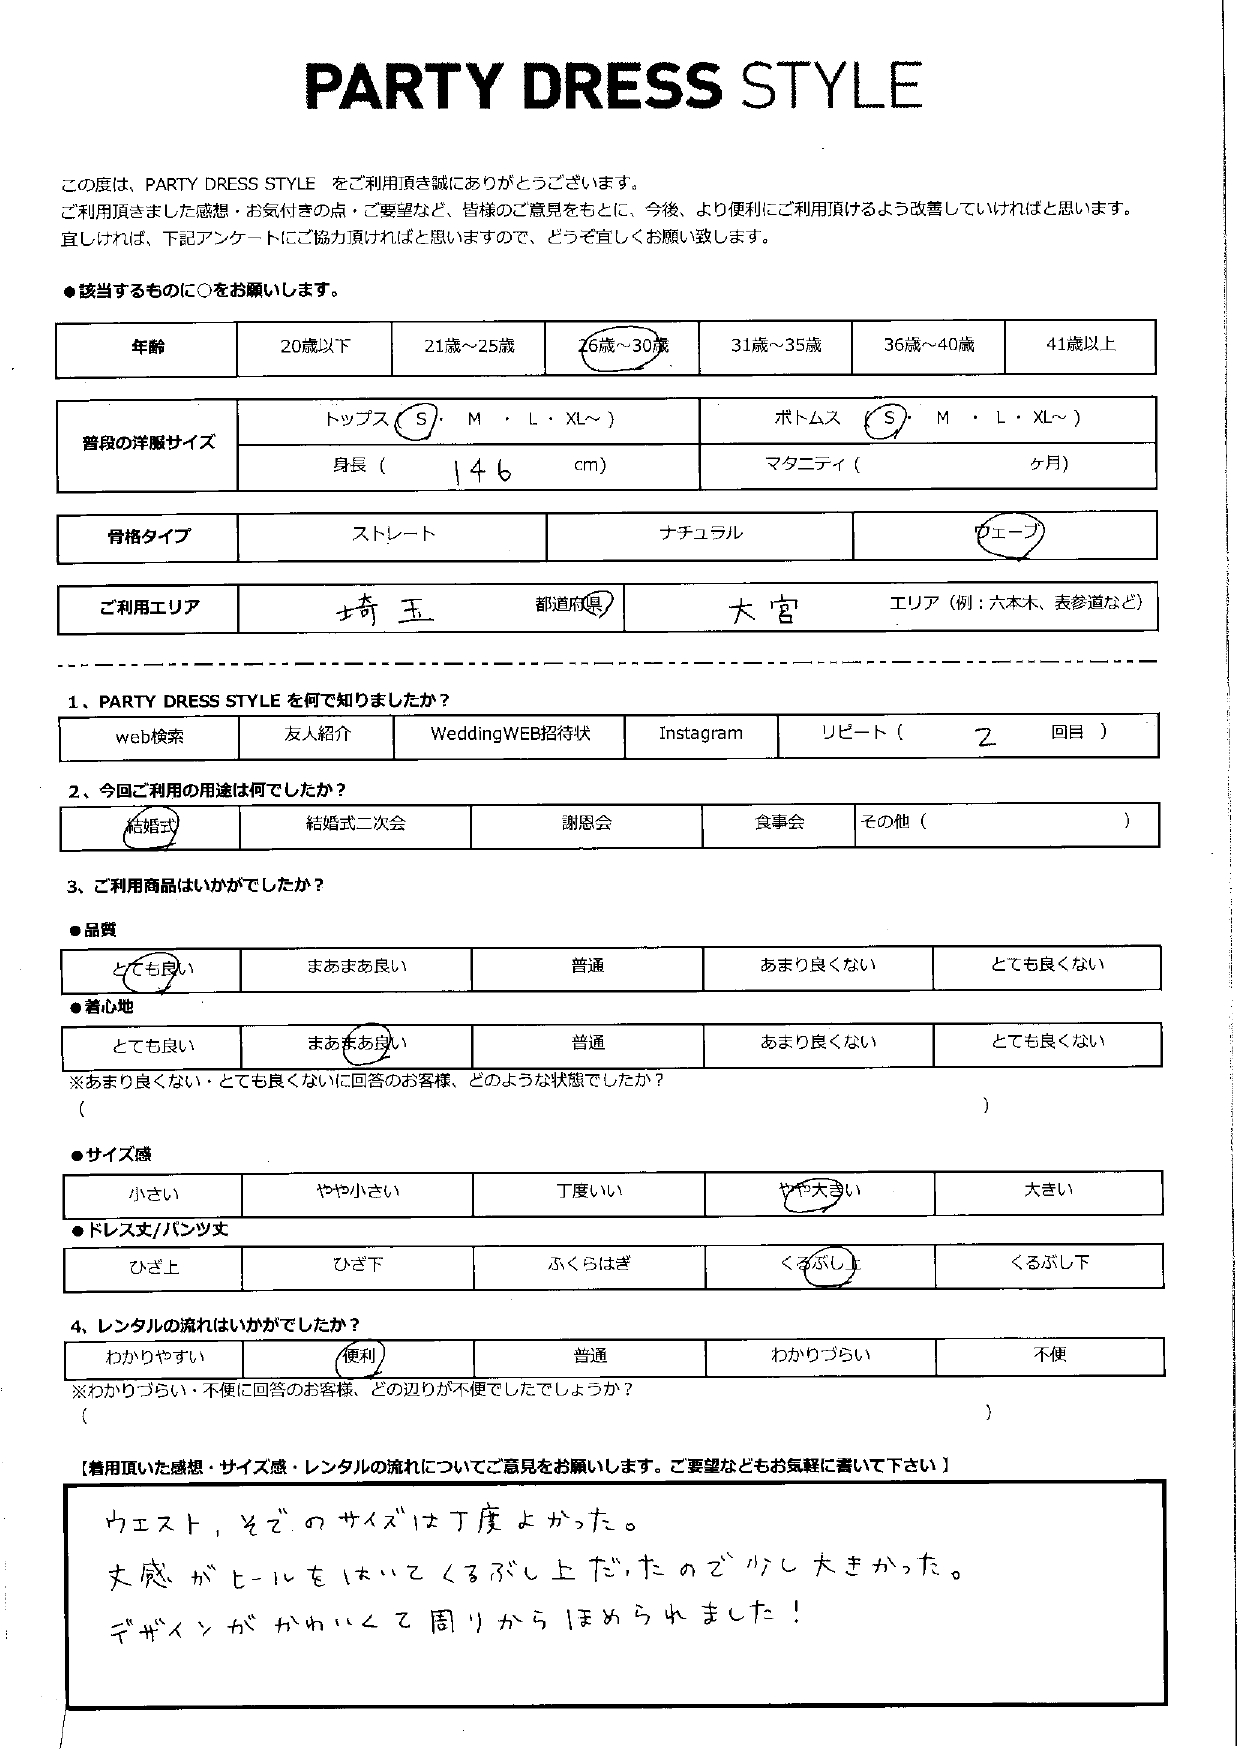 PARTY DRESS STYLE
この度は、PARTY DRESS STYLE をご利用頂き誠にありがとうございます。
ご利用頂きました感想・お気付きの点・ご要望など、皆様のご意見をもとに、今後、より便利にご利用頂けるよう改善していければと思います。
宜しければ、下記アンケートにご協力頂ければと思いますので、どうぞ宜しくお願い致します。
●該当するものに○をお願いします。
年齢 20歳以下 21歳～25歳 26歳～30歳 31歳～35歳 36歳～40歳 41歳以上
普段の洋服サイズ トップス ( S ・ M ・ L ・ XL～ ) ボトムス ( S ・ M ・ L ・ XL～ )
身長 ( 146 cm) マタニティ ( ヶ月)
骨格タイプ ストレート ナチュラル ウェーブ
ご利用エリア 埼玉 都道府県 大宮 エリア（例：六本木、表参道など）
1、PARTY DRESS STYLE を何で知りましたか？
web検索 友人紹介 WeddingWEB招待状 Instagram リピート ( 2 回目 )
2、今回ご利用の用途は何でしたか？
結婚式 結婚式二次会 謝恩会 食事会 その他 ( )
3、ご利用商品はいかがでしたか？
●品質
とても良い まあまあ良い 普通 あまり良くない とても良くない
●着心地
とても良い まあまあ良い 普通 あまり良くない とても良くない
※あまり良くない・とても良くないに回答のお客様、どのような状態でしたか？
( )
●サイズ感
小さい やや小さい 丁度いい やや大きい 大きい
●ドレス丈/パンツ丈
ひざ上 ひざ下 ふくらはぎ くるぶし上 くるぶし下
4、レンタルの流れはいかがでしたか？
わかりやすい 便利 普通 わかりづらい 不便
※わかりづらい・不便に回答のお客様、どの辺りが不便でしたでしょうか？
( )
【着用頂いた感想・サイズ感・レンタルの流れについてご意見をお願いします。ご要望などもお気軽に書いて下さい】
ウエスト，そでのサイズは丁度よかった。
丈感がヒールをはいてくるぶし上だったので少し大きかった。
デザインがかわいくて周りからほめられました！